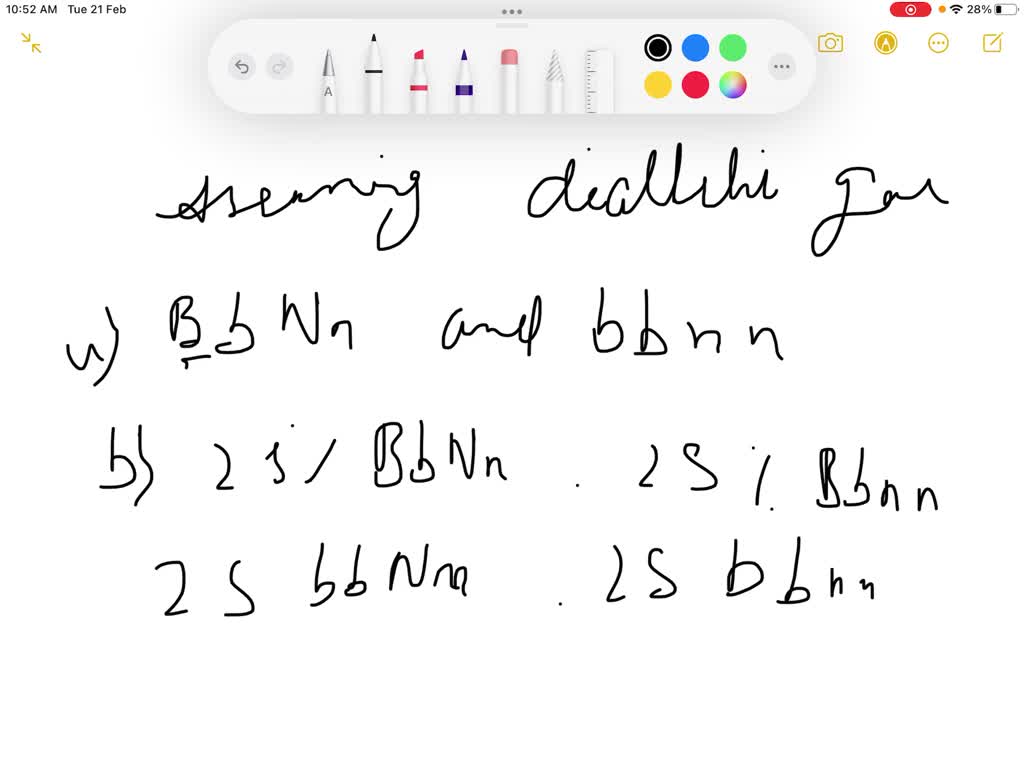 10:52 AM Tue 21 Feb 28%
A
Assuming diallelic gene
a) BbNn and bbnn
b) 25% BbNn . 25% Bbnn
25 bbNn . 25 bbnn